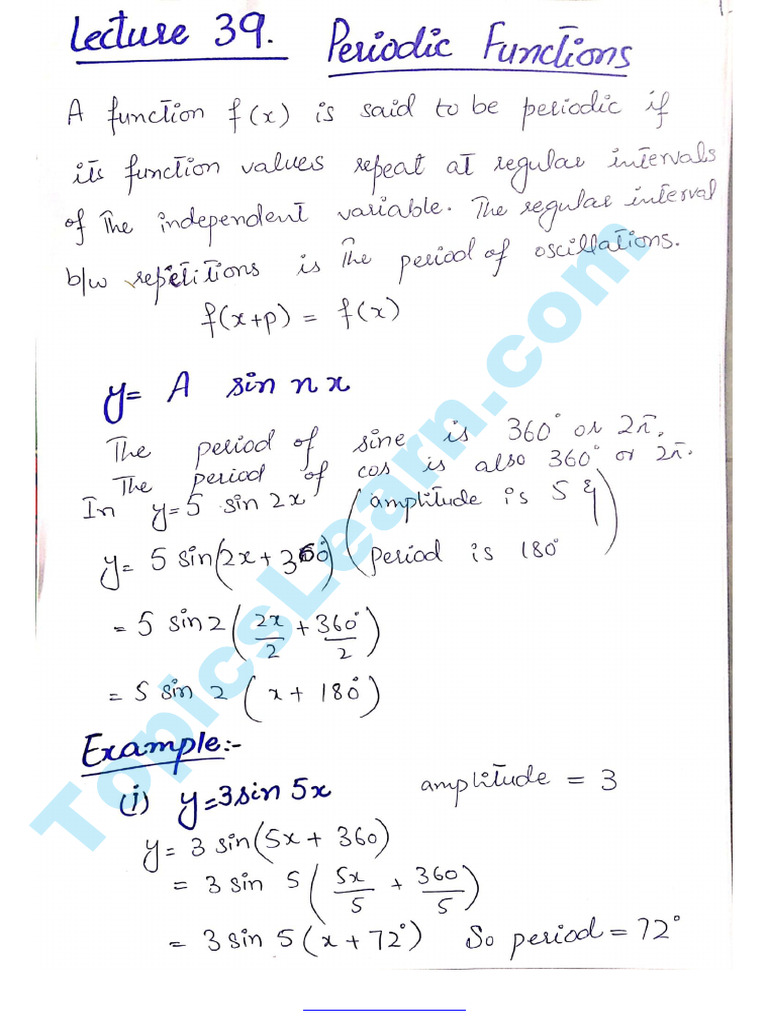 1.
Lecture 39. Periodic Functions
A function f(x) is said to be periodic if
its function values repeat at regular intervals
of the independent variable. The regular interval
b/w repetitions is the period of oscillations.
f(x+p) = f(x)
y= A sin nx
The period of sine is 360° or 2π.
The period of cos is also 360° or 2π.
In y=5 sin 2x (amplitude is 5 &
y= 5 sin(2x+360°) period is 180°)
= 5 sin2(2x/2 + 360°/2)
= 5 sin 2 (x + 180°)
Example:-
(i) y=3sin 5x amplitude = 3
y= 3 sin(5x + 360)
= 3 sin 5(5x/5 + 360/5)
= 3 sin 5(x+72°) So period = 72°
TopicsLearn.com